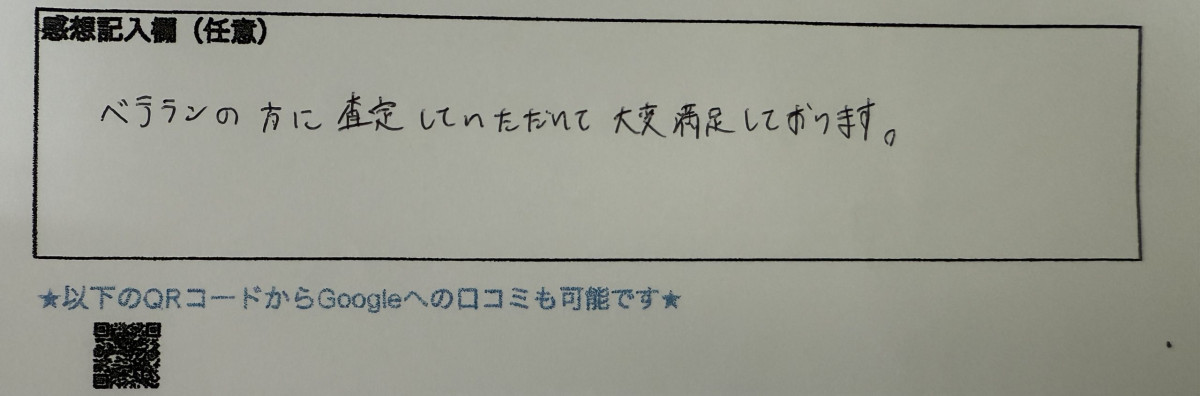 感想記入欄（任意）
ベテランの方に査定していただいて大変満足しております。
★以下のQRコードからGoogleへの口コミも可能です★